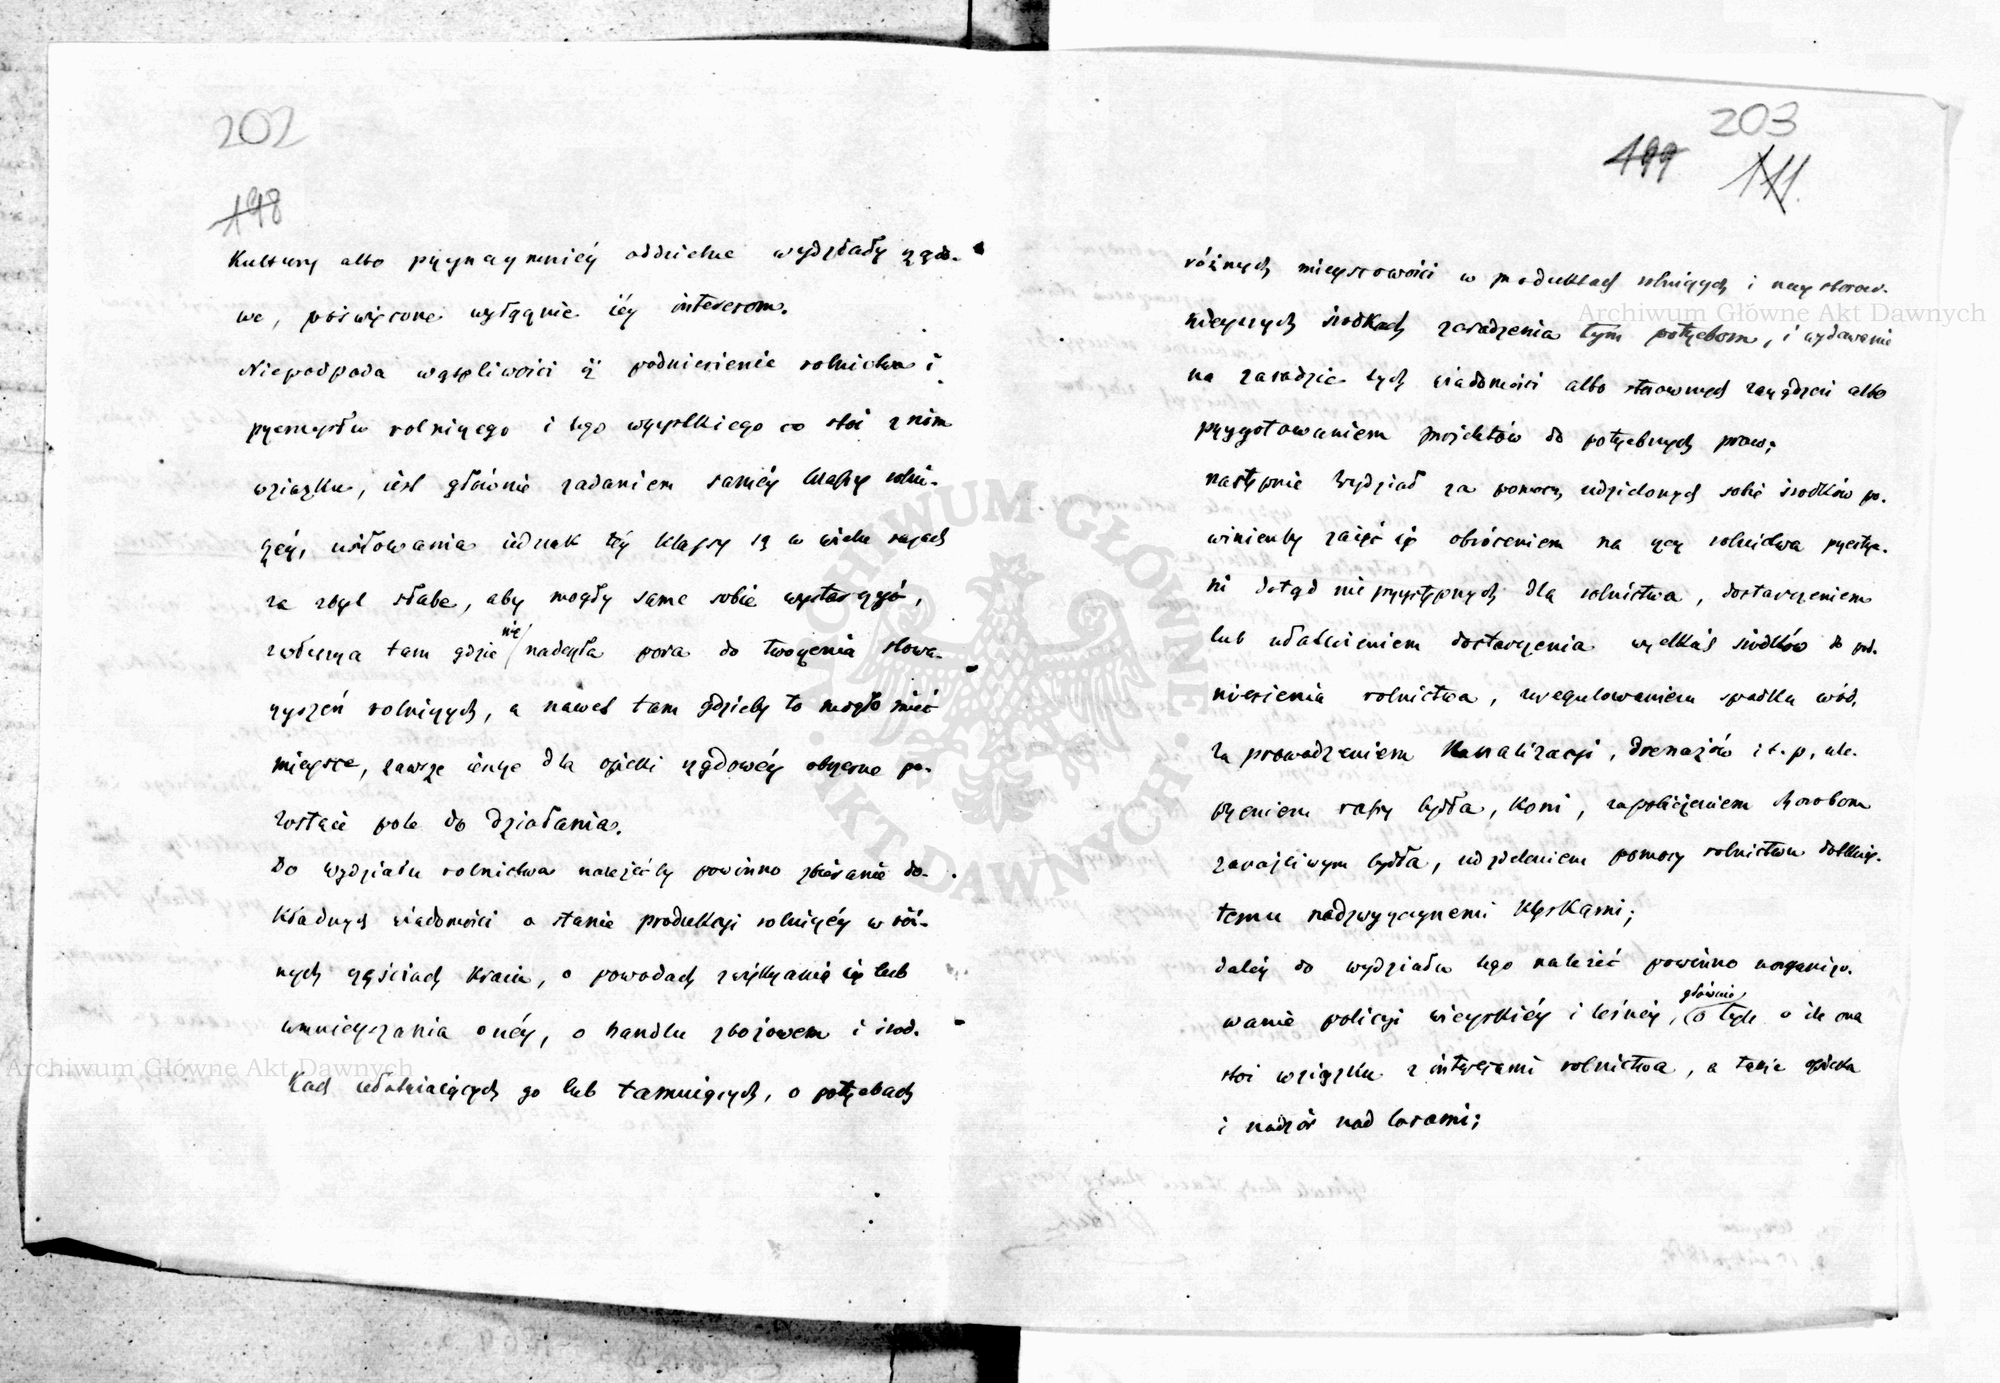 202
198
Kultury albo przynaymniéy oddzielne wydziały rządo-
we, poświęcone wyłącznie iéy interesom.
Niepodpada wątpliwości iż podniesienie rolnictwa i
przemysłu rolniczego i tego wszystkiego co stoi z nim
wziązku, iest głównie zadaniem saméy klassy rolni-
czéy, usiłowania iednak téy klassy są w wielu razach
za zbyt słabe, aby mogły same sobie wystarczyć,
zwłaszcza tam gdzie nie nadeszła pora do tworzenia stowa-
rzyszeń rolniczych, a nawet tam gdzieby to mogło mieć
mieysce, zawsze iescze dla opieki rządowéy obszerne po-
zostaie pole do działania.
Do wydziału rolnictwa należećby powinno zbieranie do-
kładnych wiadomości o stanie produkcyi rolniczéy w róż-
nych częściach kraiu, o powodach zwiększania się lub
umnieyszania onéy, o handlu zbożowem i środ-
kach ułatwiaiących go lub tamuiących, o potrzebach
203
199
111.
różnych mieyscowości w produktach rolniczych i naystosow-
nieyszych środkach zaradzenia tym potrzebom, i wydawanie
na zasadzie tych wiadomości albo stosownych zarządzeń albo
przygotowaniem proiektów do potrzebnych praw;
następnie Wydział za pomocą udzielonych sobie środków po-
winienby zaiąć się obróceniem na rzecz rolnictwa przestrze-
ni dotąd nieprzystępnych dla rolnictwa, dostarczeniem
lub ułatwieniem dostarczenia wszelkich środków do pod-
niesienia rolnictwa, uregulowaniem spadku wód,
zaprowadzeniem kanalizacyi, drenażów i t. p, ule-
pszeniem rassy bydła, koni, zapobieżeniem chorobom
zaraźliwym bydła, udzieleniem pomocy rolnictwu dotknię-
temu nadzwyczaynemi klęskami;
daléy do wydziału tego należeć powinno uorganizo-
wanie policyi wieyskiéy i leśnéy, głównie o tyle o ile ona
stoi wziązku z interesami rolnictwa, a także opieka
i nadzór nad lasami;
Archiwum Główne Akt Dawnych
Archiwum Główne Akt Dawnych
ARCHIWUM GŁÓWNE AKT DAWNYCH